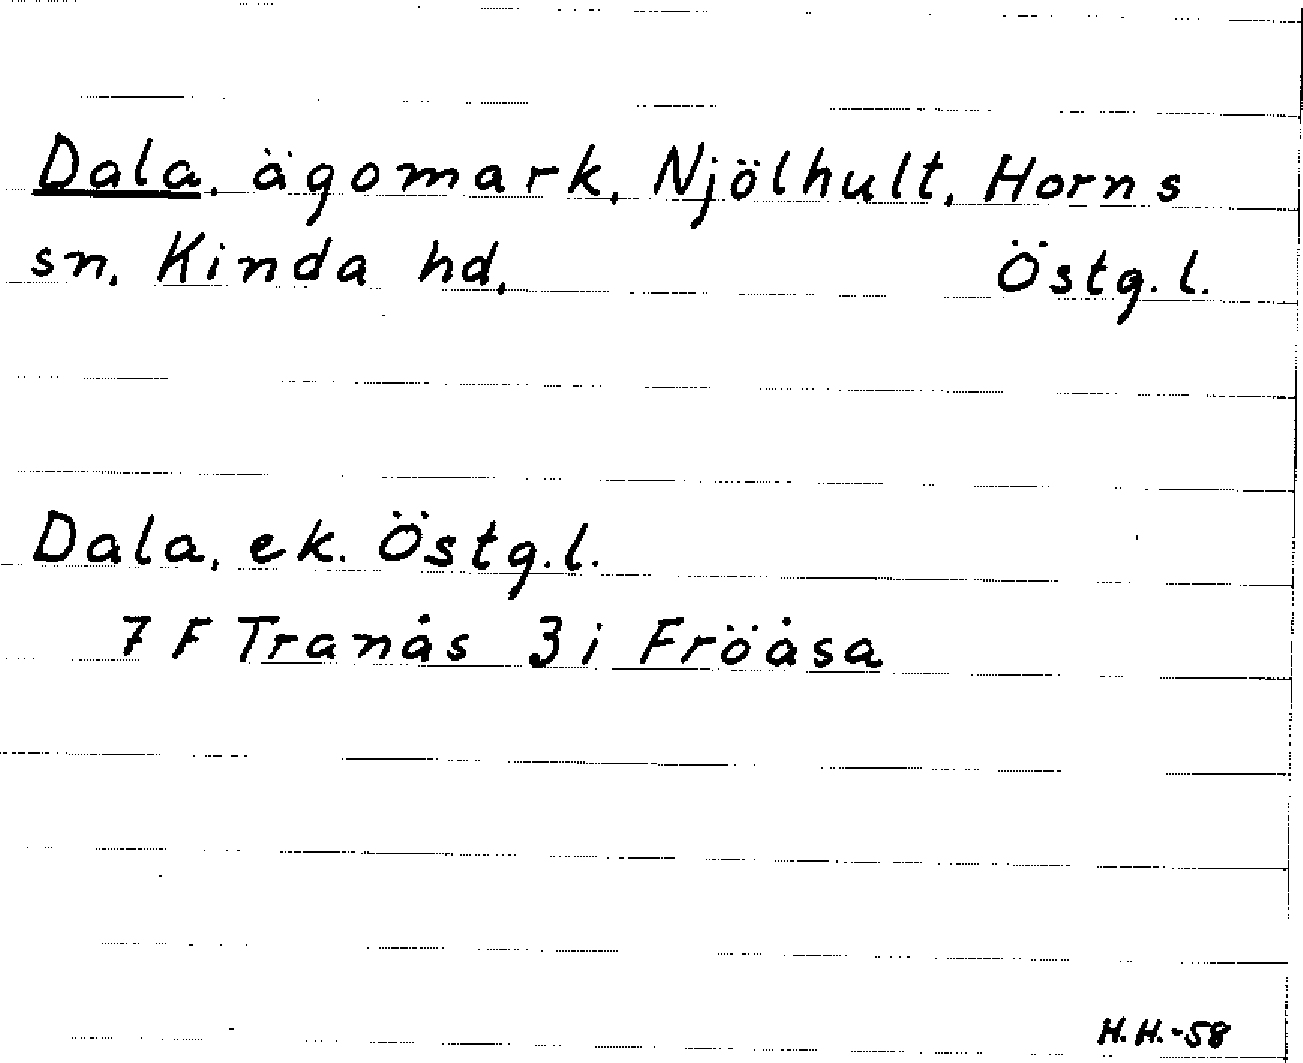 Dala, ägomark, Njölhult, Horns
sn, Kinda hd, Östg.l.
Dala, ek. Östg.l.
7 F Tranås 3 i Fröåsa
H.H.-58